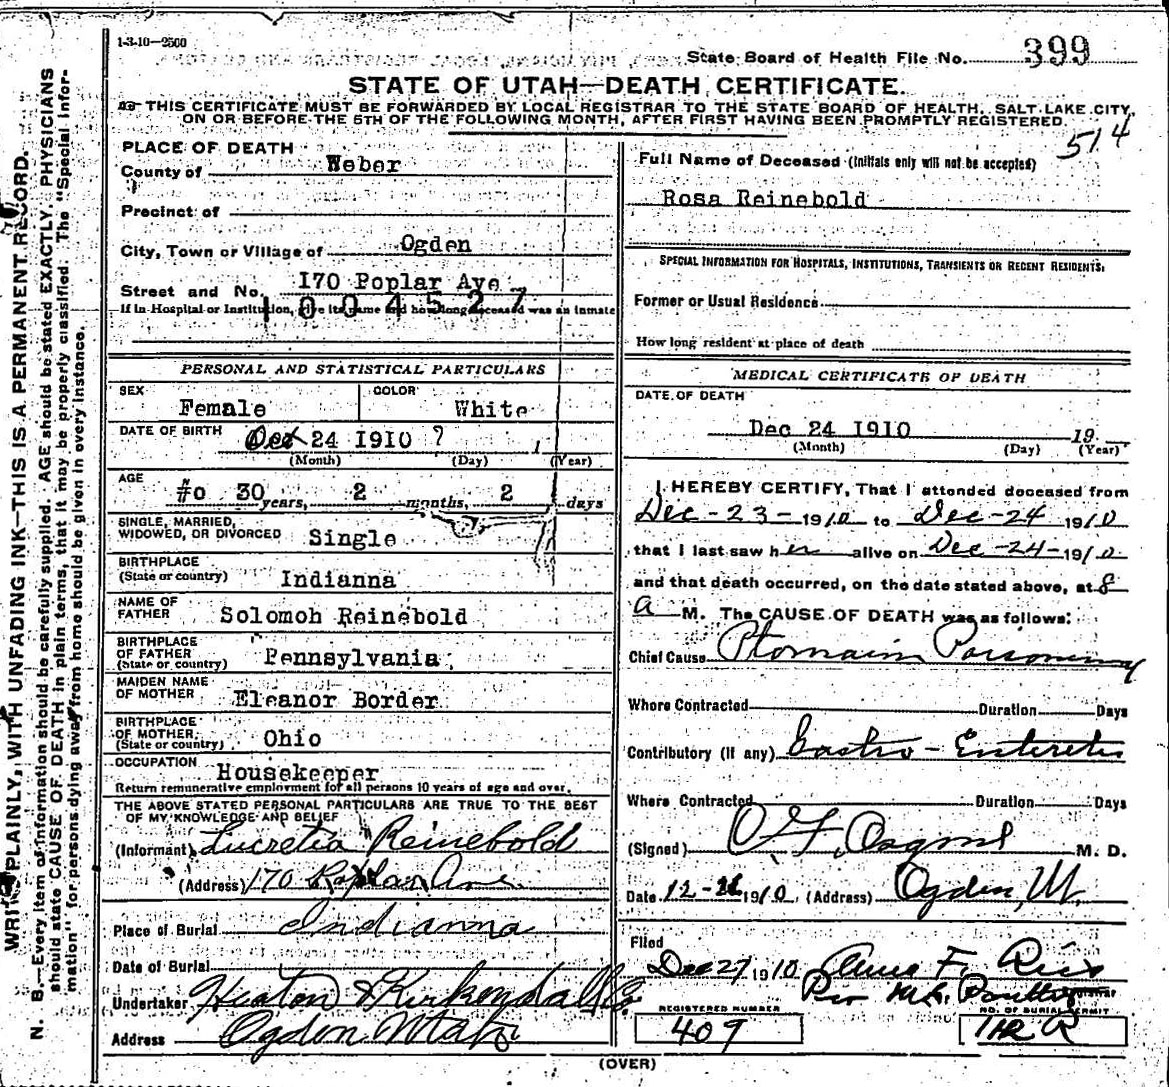 1-3-10—2500
State Board of Health File No. 399
STATE OF UTAH—DEATH CERTIFICATE.
THIS CERTIFICATE MUST BE FORWARDED BY LOCAL REGISTRAR TO THE STATE BOARD OF HEALTH, SALT LAKE CITY,
ON OR BEFORE THE 5TH OF THE FOLLOWING MONTH, AFTER FIRST HAVING BEEN PROMPTLY REGISTERED.
514
PLACE OF DEATH
County of Weber
Precinct of
City, Town or Village of Ogden
Street and No. 170 Poplar Ave
1004527
If in Hospital or Institution, give its name and how long deceased was an inmate
PERSONAL AND STATISTICAL PARTICULARS
SEX Female COLOR White
DATE OF BIRTH Oct 24 1910 ? 1
(Month) (Day) (Year)
AGE #0 30 years, 2 months, 2 days
SINGLE, MARRIED,
WIDOWED, OR DIVORCED Single
BIRTHPLACE
(State or country) Indianna
NAME OF
FATHER Solomoh Reinebold
BIRTHPLACE
OF FATHER
(State or country) Pennsylvania
MAIDEN NAME
OF MOTHER Eleanor Border
BIRTHPLACE
OF MOTHER
(State or country) Ohio
OCCUPATION Housekeeper
Return remunerative employment for all persons 10 years of age and over.
THE ABOVE STATED PERSONAL PARTICULARS ARE TRUE TO THE BEST
OF MY KNOWLEDGE AND BELIEF
(Informant) Lucretia Reinebold
(Address) 170 Poplar Ave
Place of Burial Indianna
Date of Burial
Undertaker & Kirkendall Co.
Address Ogden Utah
Full Name of Deceased (Initials only will not be accepted)
Rosa Reinebold
SPECIAL INFORMATION FOR HOSPITALS, INSTITUTIONS, TRANSIENTS OR RECENT RESIDENTS:
Former or Usual Residence
How long resident at place of death
MEDICAL CERTIFICATE OF DEATH
DATE OF DEATH
Dec 24 1910 19
(Month) (Day) (Year)
I HEREBY CERTIFY, That I attended deceased from
Dec-23-1910 to Dec-24 1910
that I last saw her alive on Dec-24-1910
and that death occurred, on the date stated above, at 8
a M. The CAUSE OF DEATH was as follows:
Chief Cause Ptomain Poisoning
Where Contracted Duration Days
Contributory (if any) Gastro-Enteretis
Where Contracted Duration Days
(Signed) M. D.
Date 12-1910 (Address) Ogden, Ut.
Filed
Dec 27 1910 F.
Per
REGISTERED NUMBER
409
NO. OF BURIAL PERMIT
(OVER)
WRITE PLAINLY, WITH UNFADING INK—THIS IS A PERMANENT RECORD.
N. B.—Every item of information should be carefully supplied. AGE should be stated EXACTLY. PHYSICIANS
should state CAUSE OF DEATH in plain terms, that it may be properly classified. The "Special Infor-
mation" for persons dying away from home should be given in every instance.